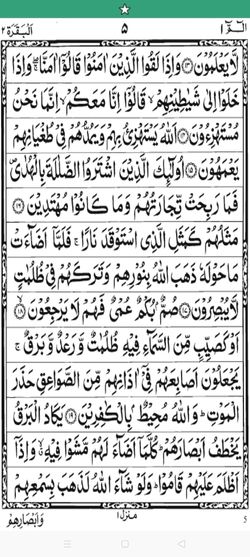 الٓمّٓ ١ ٥ البقرة ٢
لَّا يَعْلَمُوْنَ ﴿١٣﴾ وَاِذَا لَقُوا الَّذِيْنَ اٰمَنُوْا قَالُوْٓا اٰمَنَّا ۚ وَاِذَا
خَلَوْا اِلٰى شَيٰطِيْنِهِمْ ۙ قَالُوْٓا اِنَّا مَعَكُمْ ۙ اِنَّمَا نَحْنُ
مُسْتَهْزِءُوْنَ ﴿١٤﴾ اَللّٰهُ يَسْتَهْزِئُ بِهِمْ وَيَمُدُّهُمْ فِيْ طُغْيَانِهِمْ
يَعْمَهُوْنَ ﴿١٥﴾ اُولٰٓئِكَ الَّذِيْنَ اشْتَرَوُا الضَّلٰلَةَ بِالْهُدٰى ۪
فَمَا رَبِحَتْ تِّجَارَتُهُمْ وَمَا كَانُوْا مُهْتَدِيْنَ ﴿١٦﴾
مَثَلُهُمْ كَمَثَلِ الَّذِي اسْتَوْقَدَ نَارًا ۚ فَلَمَّآ اَضَآءَتْ
مَا حَوْلَهٗ ذَهَبَ اللّٰهُ بِنُوْرِهِمْ وَتَرَكَهُمْ فِيْ ظُلُمٰتٍ
لَّا يُبْصِرُوْنَ ﴿١٧﴾ صُمٌّۢ بُكْمٌ عُمْيٌ فَهُمْ لَا يَرْجِعُوْنَ ﴿١٨﴾
اَوْ كَصَيِّبٍ مِّنَ السَّمَآءِ فِيْهِ ظُلُمٰتٌ وَّرَعْدٌ وَّبَرْقٌ ۚ
يَجْعَلُوْنَ اَصَابِعَهُمْ فِيْٓ اٰذَانِهِمْ مِّنَ الصَّوَاعِقِ حَذَرَ
الْمَوْتِ ؕ وَاللّٰهُ مُحِيْطٌۢ بِالْكٰفِرِيْنَ ﴿١٩﴾ يَكَادُ الْبَرْقُ
يَخْطَفُ اَبْصَارَهُمْ ؕ كُلَّمَآ اَضَآءَ لَهُمْ مَّشَوْا فِيْهِ ۙ وَاِذَآ
اَظْلَمَ عَلَيْهِمْ قَامُوْا ؕ وَلَوْ شَآءَ اللّٰهُ لَذَهَبَ بِسَمْعِهِمْ
منزل ١ وَاَبْصَارِهِمْ
5